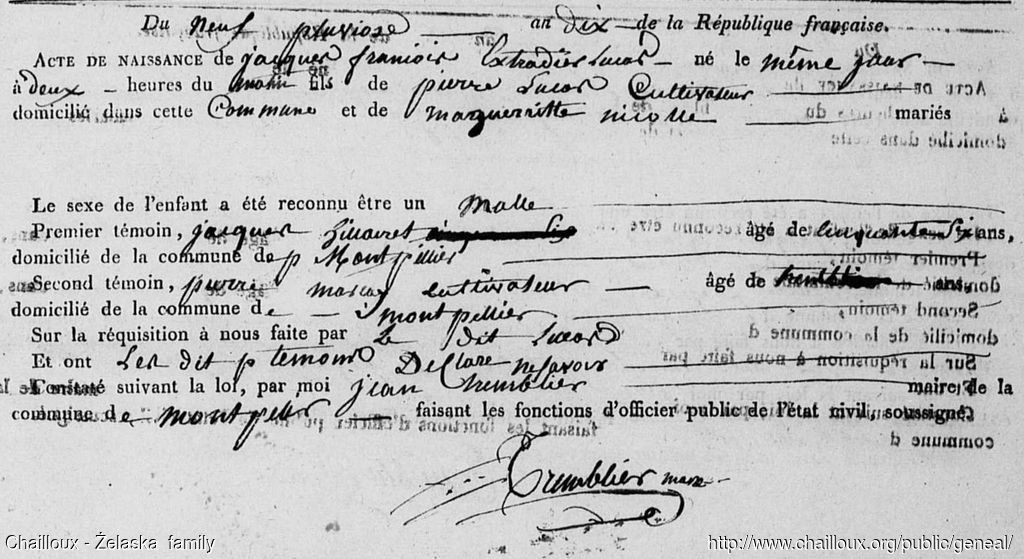 Du neuf pluviose an dix de la République française.
ACTE DE NAISSANCE de jacques franiois Lucas né le même jour
à deux heures du matin fils de pierre Lucas Cultivateur
domicilié dans cette Commune et de margueritte nicolle mariés
Le sexe de l'enfant a été reconnu être un malle
Premier témoin, jacques âgé de cinquante six ans,
domicilié de la commune de Montpellier
Second témoin, pierre cultivateur âgé de ans,
domicilié de la commune de montpellier
Sur la réquisition à nous faite par Le dit Lucas
Et ont Les dit temoins Declare ne savoir
Constaté suivant la loi, par moi jean Tremblier maire de la
commune de montpellier faisant les fonctions d'officier public de l'état civil, soussigné.
Tremblier maire
Chailloux - Želaska family
http://www.chailloux.org/public/geneal/